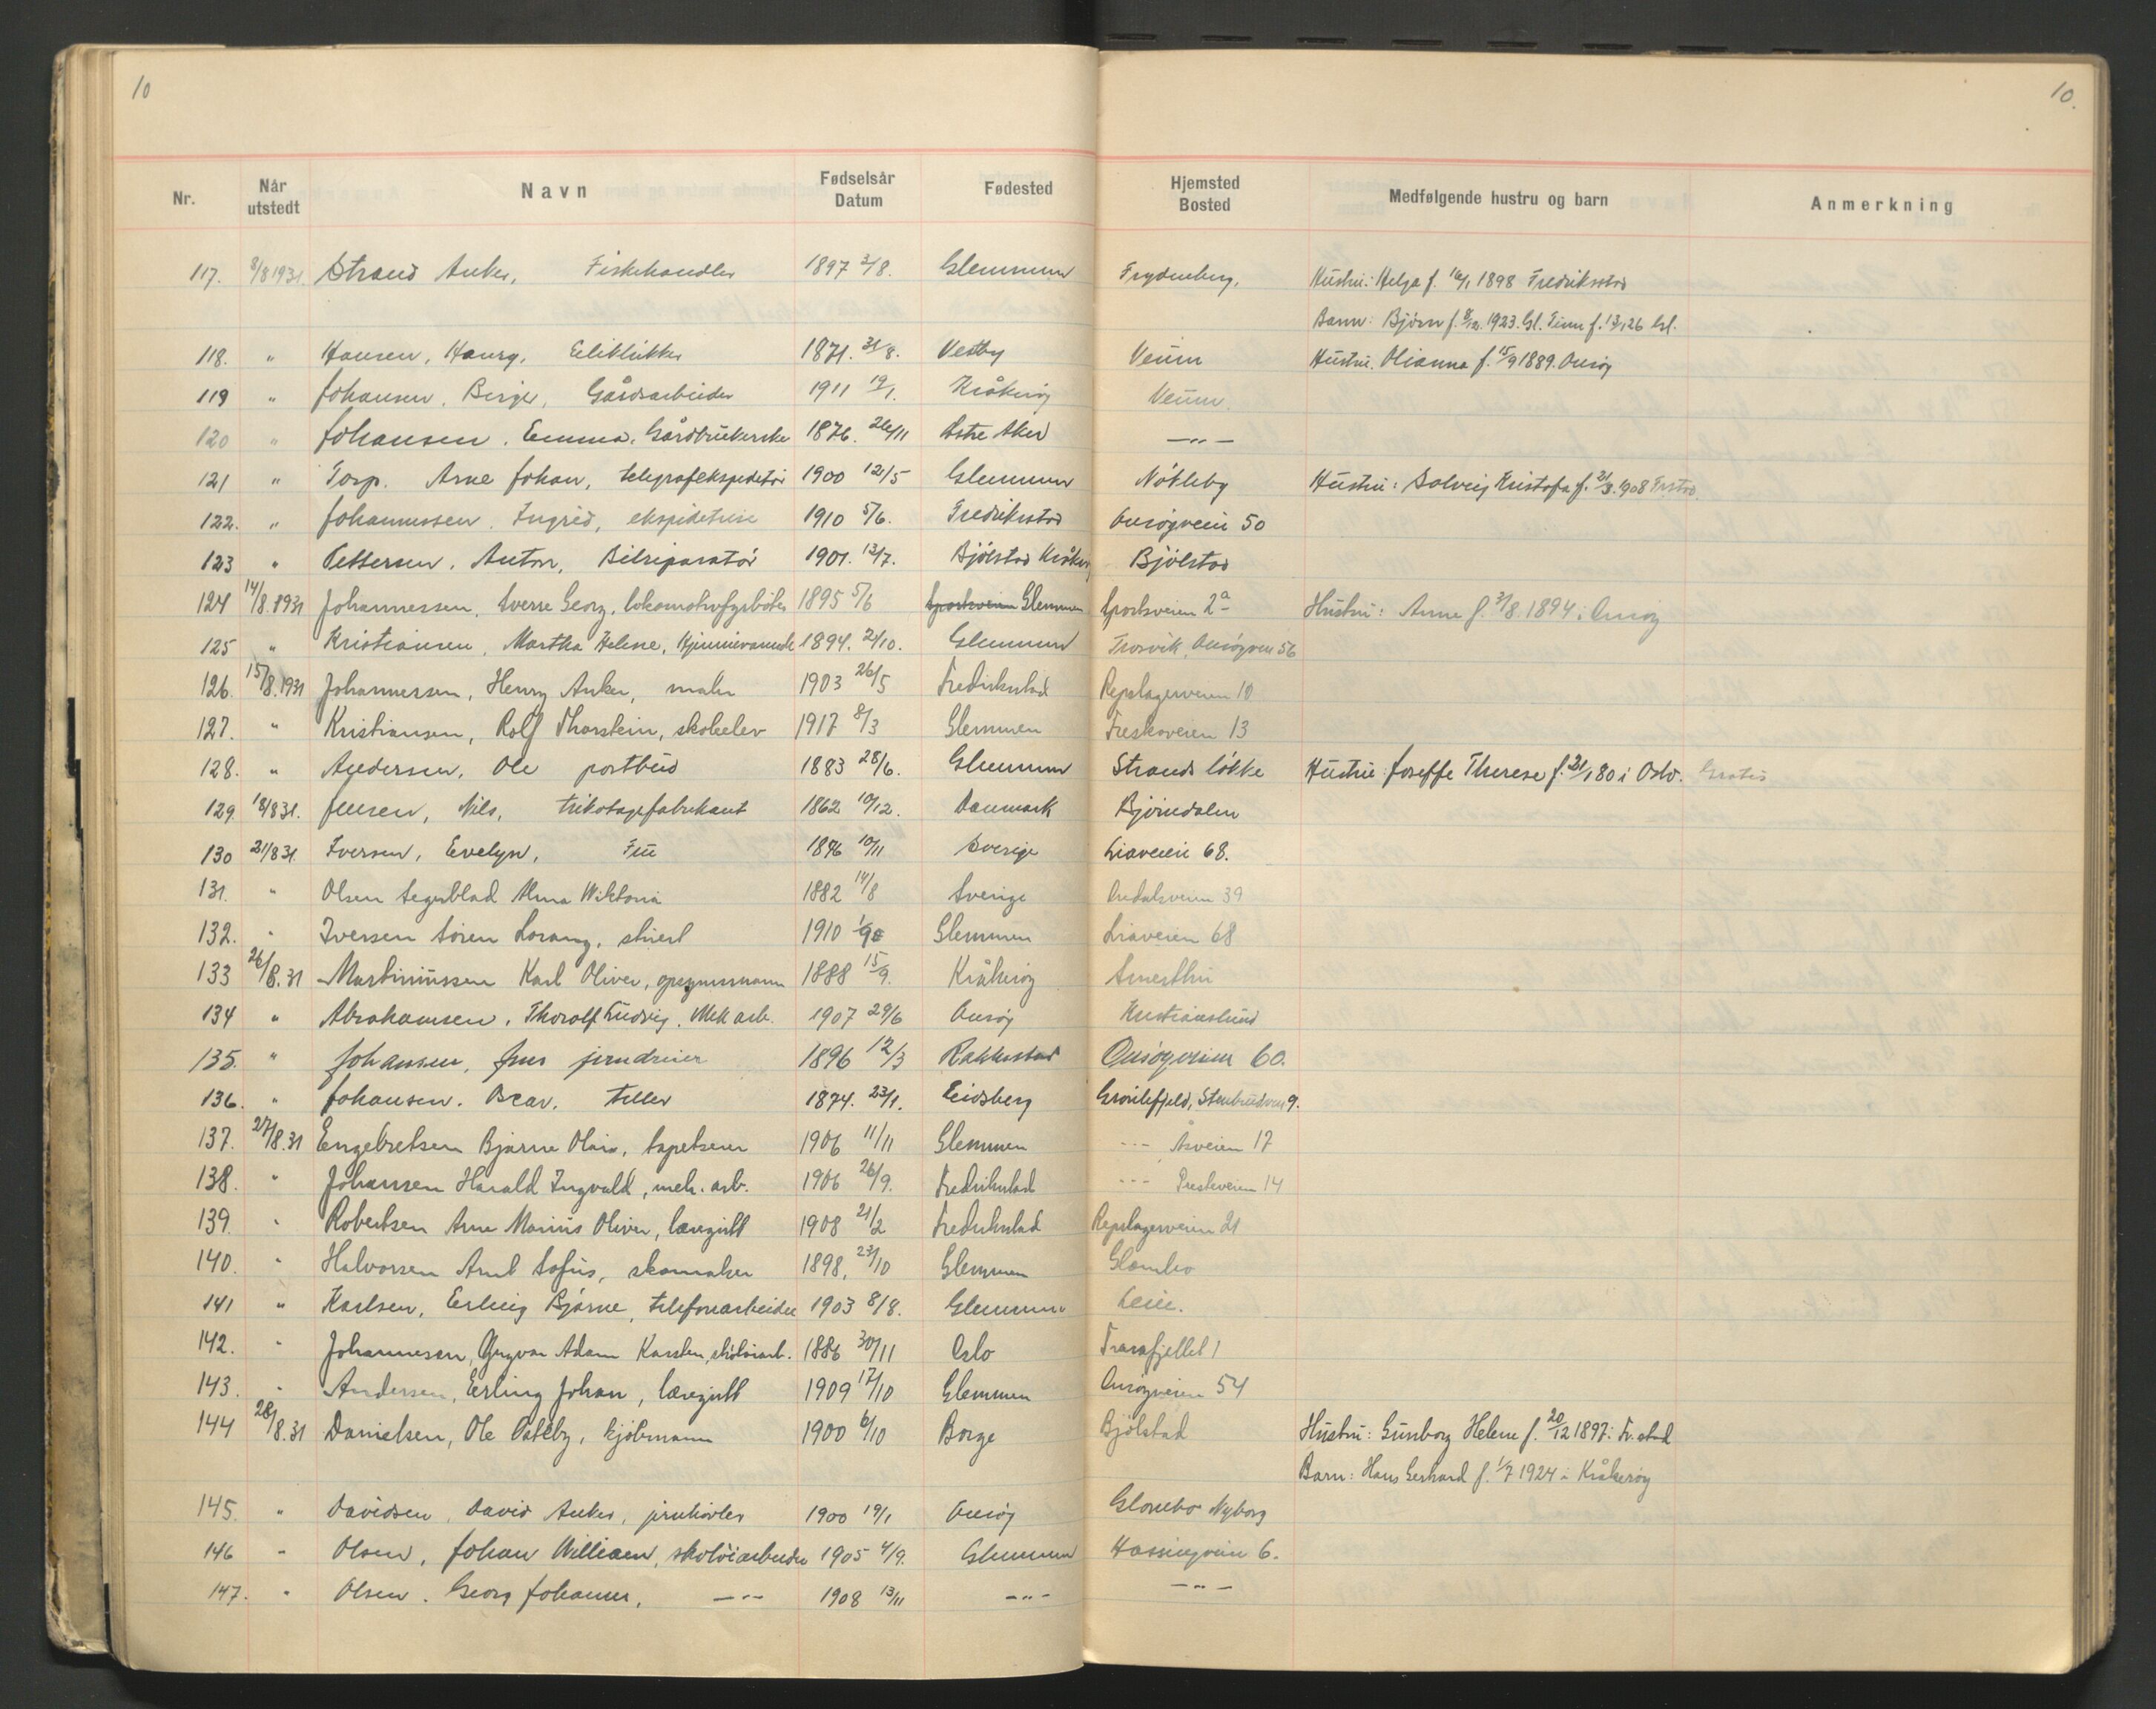 10
10.
Nr. Når utstedt Navn Fødselsår Datum Fødested Hjemsted Bosted Medfølgende hustru og barn Anmerkning
117. 8/8 1931. Strand Anker, Fiskehandler 1897 3/8. Glemmen Frydenberg, Hustru: Helga f. 16/1 1898 Fredrikstad
Barn: Björn f. 8/12. 1923. Gl. Finn f. 13/1 26 Gl.
118. " Hansen, Haury, 1871. 31/8. Vestby Veum Hustru. Olianna f. 15/9 1889. Onsøy
119 " Johansen, Birger, Gårdsarbeider 1911 19/1. Kråkerøy Veum.
120 " Johansen, Emma, Gårdbrukerske 1876. 26/11 Østre Aker —"—
121 " Torp. Arne Johan, telegrafekspeditör 1900 12/5 Glemmen Nökleby Hustru: Solveig Kristofa f. 31/3. 1908 Frstad.
122. " Johannessen, Ingrid, ekspeditrise 1910 5/6. Fredrikstad Onsøyveien 50
123 " Pettersen, Anton, Bilreparatör 1901. 13/7. Bjölstad Kråkerøy Bjölstad
124 14/8. 1931 Johannessen, Sverre Georg, lokomotivfyrböter 1895 5/6 Glemmen Sportsveien 2a Hustru: Anne f. 31/8. 1894 i Onsøy
125 " Kristiansen, Martha Helene, Hjemmeværende 1894. 21/10. Glemmen Trosvik, Onsøyveien 56
126. 15/8. 1931 Johannessen, Henry Anker, maler 1903 26/5 Fredrikstad Repslagerveien 10
127. " Kristiansen, Rolf Thorstein, skoleelev 1917 8/3 Glemmen Freskoveien 13
128. " Andersen, Ole postbud 1883 28/6. Glemmen Strands lökke Hustru Joseffe Therese f. 21/1 80 i Oslo. Gratis
129. 18/8 31. Jensen, Nils, trikotagefabrikant 1862 10/12. Danmark Björndalen
130 21/8 31. Iversen, Evelyn, Fru 1896 10/11 Sverige Liaveien 68.
131. " Olsen Segerblad Alma Wiktoria 1882 14/8 Sverige 39
132. " Iversen Sören Lorang, stuert 1910 1/9 Glemmen Liaveien 68
133 26/8. 31 Martiniussen Karl Oliver, opsynsmann 1888 15/9. Kråkeröy
134 " Abrahamsen, Thorolf Ludvig, Mek arb. 1907 29/6 Onsøy Kristianslund
135. " Johansen, Jens jerndreier 1896 12/3 Rakkestad Onsøyveien 60.
136. " Johansen. Oscar. teller 1874. 23/1. Eidsberg Gronlifjeld, Stenbrudveien 9.
137. 27/8. 31 Engebretsen Bjarne Olav, tapetserer 1906 11/11 Glemmen --- Åsveien 17
138. " Johansen Harald Ingvald, mek. arb. 1906 26/9. Fredrikstad --- Presteveien 14
139. " Robertsen Arne Marius Oliver, læregutt 1908 21/2 Fredrikstad Repslagerveien 21
140. " Halvorsen Arnt Sofus, skomaker 1898. 23/10 Glemmen Glombo
141 " Karlsen, Erling Bjarne, telefonarbeider 1903 8/8. Glemmen Leie.
142. " Johannesen, Yngvar Adam Karsten, skotöiarb. 1886 30/11 Oslo Trarafjellet 1
143. " Andersen, Erling Johan, læregutt 1909 17/10 Glemmen Onsøyveien 54
144 28/8. 31 Danielsen, Ole Östeby, kjöbmann 1900 6/10 Borge Bjölstad Hustru: Gunborg Helene f. 20/12 1897 i Fr.stad
Barn: Hans Gerhard f. 1/7 1924 i Kråkeröy
145. " Davidsen, David Anker, jernhövler 1900 19/1 Onsøy Glombo Nyborg
146 " Olsen, Johan William, skotöiarbeider 1905 4/9. Glemmen Hassingveien 6.
147. " Olsen. Georg Johannes, —"— 1908 13/11 —"— —"—